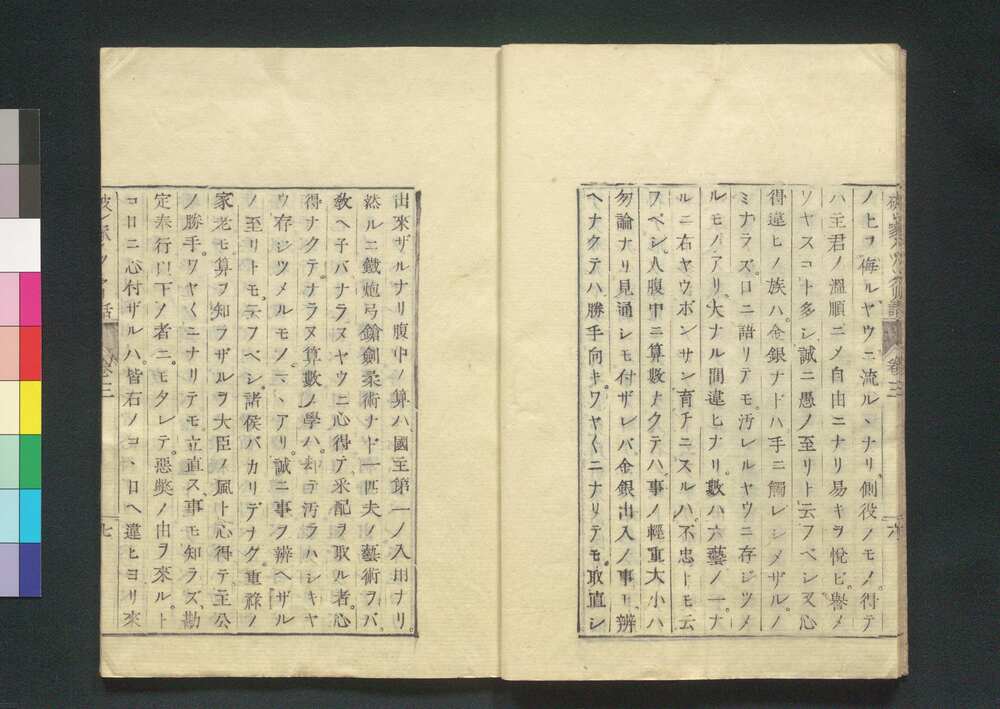 ノ上ヲ侮ルヤウニ流ルヽナリ、側役ノモノ。得テ
ハ主君ノ溫順ニメ自由ニナリ易キヲ悅ビ。譽メ
ソヤスコト多シ誠ニ愚ノ至リト云フベシ又心
得違ヒノ族ハ。金銀ナドハ手ニ觸レシメザル。ノ
ミナラズ。口ニ語リテモ。汚レルヤウニ存ジツメ
ルモノアリ、大ナル間違ヒナリ。數ハ六藝ノ一ナ
ルニ右ヤウボンサン育チニスルハ。不忠トモ云
フベシ、人腹中ニ算數ナクテハ、事ノ輕重大小ハ
勿論ナリ見通シモ付ザレバ、金銀出入ノ事ヲ、辨
ヘナクテハ勝手向キ。ワヤくニナリテモ。取直シ
卷三
六
出來ザルナリ腹中ノ算ハ國主第一ノ入用ナリ。
然ルニ鐵炮弓鎗劍柔術ナド一匹夫ノ藝術ヲバ、
敎ヘ子バナラヌヤウニ心得テ、釆配ヲ取ル者。心
得ナクテ。ナラヌ算數ノ學ハ。却テ汚ラハシキヤ
ウ存ジツメルモノ。マヽアリ。誠ニ事ヲ辨ヘザル
ノ至リトモ。云フベシ。諸侯バカリデナク。重祿ノ
家老モ。算ヲ知ラザルヲ大臣ノ風ト心得テ。主公
ノ勝手。ワヤくニナリテモ立直ス、事モ知ラズ、勘
定奉行以下ノ者ニ。モタレテ。惡獘ノ由ヲ來ル。ト
コロニ心付ザルハ。皆石ノコヽロヘ違ヒヨリ來
卷三
七